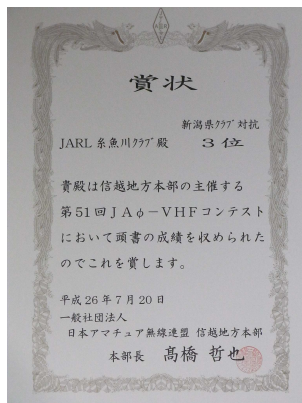 賞状
新潟県ｸﾗﾌﾞ対抗
JARL 糸魚川ｸﾗﾌﾞ殿 3位
貴殿は信越地方本部の主催する
第51回JAφ－VHFコンテスト
において頭書の成績を収められた
のでこれを賞します。
平成26年7月20日
一般社団法人
日本アマチュア無線連盟 信越地方本部
本部長 髙橋 哲也